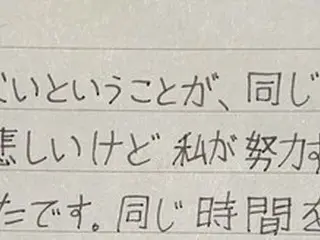 ということが、同じ
悲しいけど 私が努力す
たです。同じ時間を